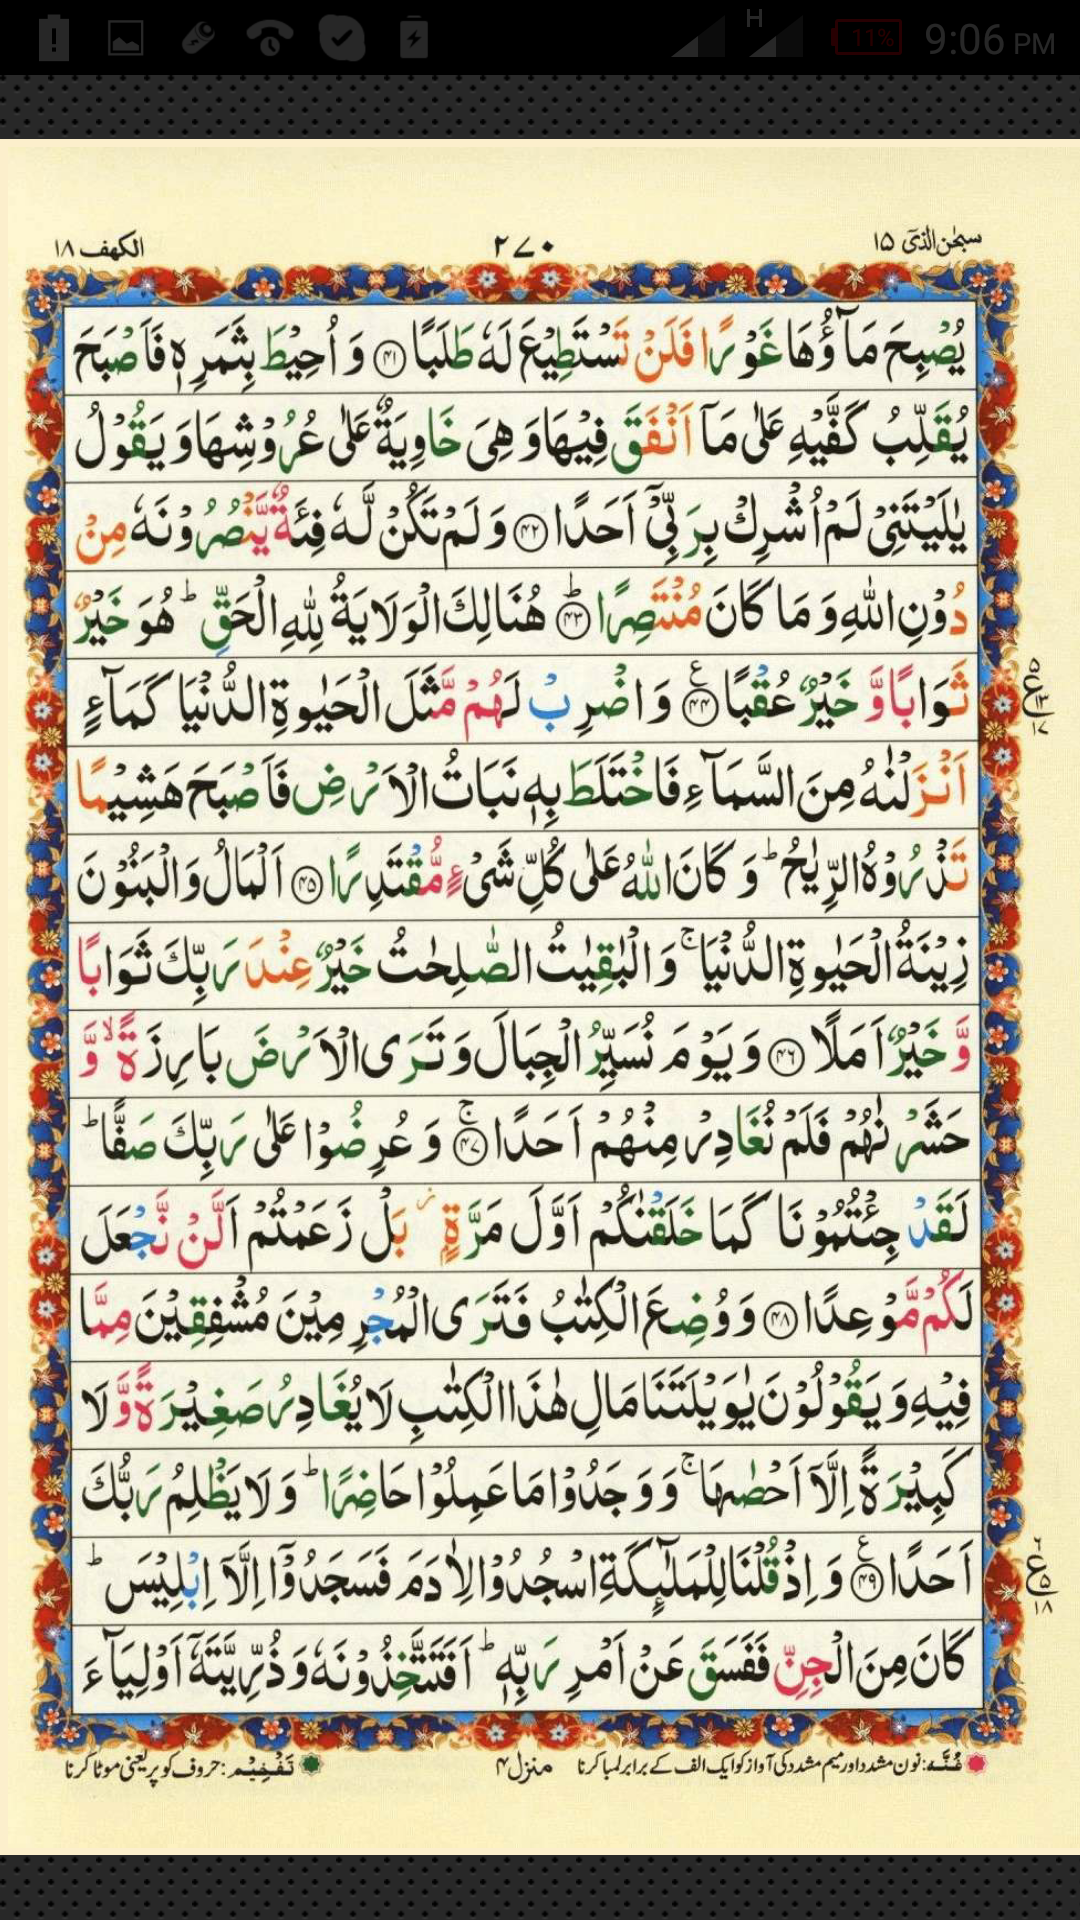 H 11% 9:06 PM
سبحٰن الذیٓ ۱۵ ۲۷۰ الکھف ۱۸
يُصْبِحَ مَآؤُهَا غَوْرًا فَلَنْ تَسْتَطِيْعَ لَهٗ طَلَبًا ﴿۴۱﴾ وَ اُحِيْطَ بِثَمَرِهٖ فَاَصْبَحَ
يُقَلِّبُ كَفَّيْهِ عَلٰى مَآ اَنْفَقَ فِيْهَا وَ هِيَ خَاوِيَةٌ عَلٰى عُرُوْشِهَا وَ يَقُوْلُ
يٰلَيْتَنِيْ لَمْ اُشْرِكْ بِرَبِّيْٓ اَحَدًا ﴿۴۲﴾ وَ لَمْ تَكُنْ لَّهٗ فِئَةٌ يَّنْصُرُوْنَهٗ مِنْ
دُوْنِ اللّٰهِ وَ مَا كَانَ مُنْتَصِرًا ﴿۴۳﴾ؕ هُنَالِكَ الْوَلَايَةُ لِلّٰهِ الْحَقِّ ؕ هُوَ خَيْرٌ
ثَوَابًا وَّ خَيْرٌ عُقْبًا ﴿۴۴﴾ع وَ اضْرِبْ لَهُمْ مَّثَلَ الْحَيٰوةِ الدُّنْيَا كَمَآءٍ
۵ ع ۱۳ ۱۷
اَنْزَلْنٰهُ مِنَ السَّمَآءِ فَاخْتَلَطَ بِهٖ نَبَاتُ الْاَرْضِ فَاَصْبَحَ هَشِيْمًا
تَذْرُوْهُ الرِّيٰحُ ؕ وَ كَانَ اللّٰهُ عَلٰى كُلِّ شَيْءٍ مُّقْتَدِرًا ﴿۴۵﴾ اَلْمَالُ وَ الْبَنُوْنَ
زِيْنَةُ الْحَيٰوةِ الدُّنْيَا ۚ وَ الْبٰقِيٰتُ الصّٰلِحٰتُ خَيْرٌ عِنْدَ رَبِّكَ ثَوَابًا
وَّ خَيْرٌ اَمَلًا ﴿۴۶﴾ وَ يَوْمَ نُسَيِّرُ الْجِبَالَ وَ تَرَى الْاَرْضَ بَارِزَةً ۙ وَّ
حَشَرْنٰهُمْ فَلَمْ نُغَادِرْ مِنْهُمْ اَحَدًا ﴿۴۷﴾ۚ وَ عُرِضُوْا عَلٰى رَبِّكَ صَفًّا ؕ
لَقَدْ جِئْتُمُوْنَا كَمَا خَلَقْنٰكُمْ اَوَّلَ مَرَّةٍۭ ز بَلْ زَعَمْتُمْ اَلَّنْ نَّجْعَلَ
لَكُمْ مَّوْعِدًا ﴿۴۸﴾ وَ وُضِعَ الْكِتٰبُ فَتَرَى الْمُجْرِمِيْنَ مُشْفِقِيْنَ مِمَّا
فِيْهِ وَ يَقُوْلُوْنَ يٰوَيْلَتَنَا مَالِ هٰذَا الْكِتٰبِ لَا يُغَادِرُ صَغِيْرَةً وَّ لَا
كَبِيْرَةً اِلَّآ اَحْصٰىهَا ۚ وَ وَجَدُوْا مَا عَمِلُوْا حَاضِرًا ؕ وَ لَا يَظْلِمُ رَبُّكَ
اَحَدًا ﴿۴۹﴾ع وَ اِذْ قُلْنَا لِلْمَلٰٓئِكَةِ اسْجُدُوْا لِاٰدَمَ فَسَجَدُوْٓا اِلَّآ اِبْلِيْسَ ؕ
۶ ع ۵ ۱۸
كَانَ مِنَ الْجِنِّ فَفَسَقَ عَنْ اَمْرِ رَبِّهٖ ؕ اَفَتَتَّخِذُوْنَهٗ وَ ذُرِّيَّتَهٗٓ اَوْلِيَآءَ
غُنَّہ: نون مشدد اور میم مشدد کی آواز کو ایک الف کے برابر لمبا کرنا منزل ۴ تَفْخِیْم: حروف کو پر یعنی موٹا کرنا